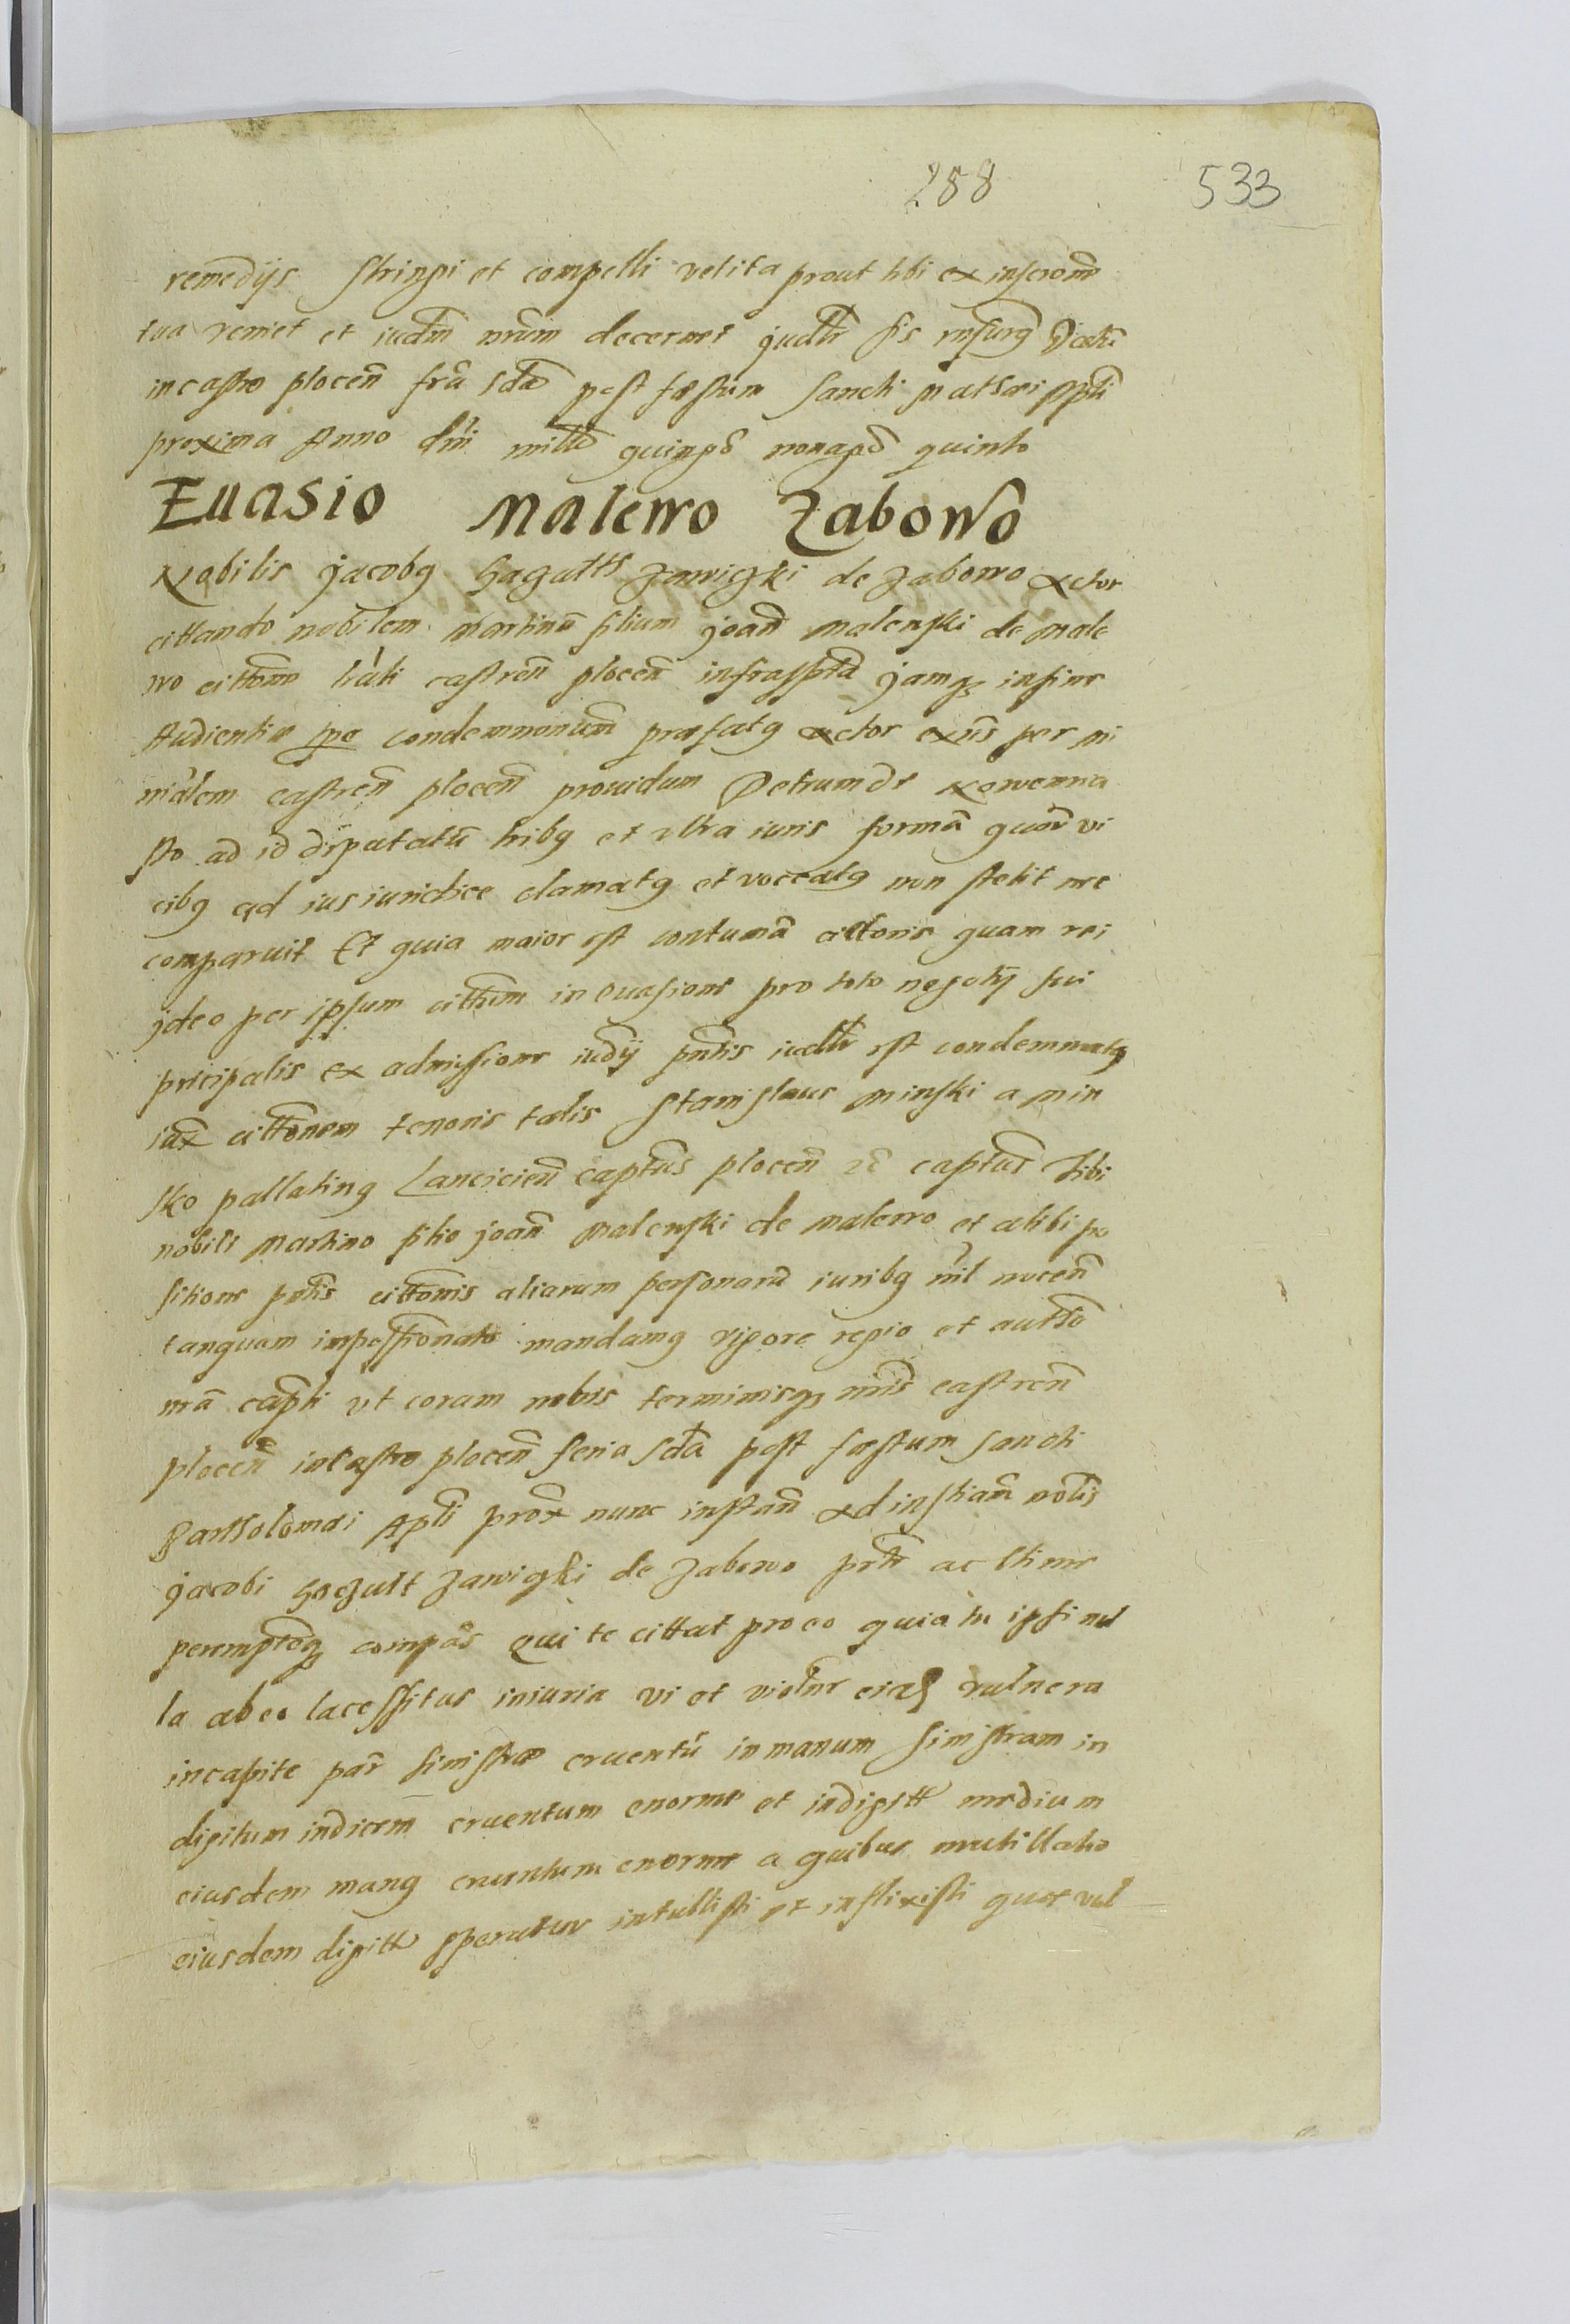 288 533
remedijs stringi et compelli velit a prout tibi ex inscrone
tua veniet et iudm nrum decernet judtr sis rnsurg Datu
in castro plocen fra sda post festum sancti mathei Apli
proxima Anno dni mille quingo nonagō quinto
Euasio Malewo Zabowo
Nobilis jacobg Zawiczki de Zabowo actor
cittando nobilem Martinū filium joan Malewski de Male
wo cittone castren plocen infrasptā jamqz in fine
Audientie condemnonum prefatg actor exns per mi
nralem castren plocen prouidum Petrum de
sto ad id diputatū tribg et vltra iuris formā quor vi
cibg ad ius iuridice clamatg et voccatg non stetit nec
comparuit Et quia maior est contumā actoris quam rei
jdeo per ipsum cittum in euasione pro toto negotij sui
pricipalis ex admissione iudij pntis iudtr est condemnatg
iux cittonem tenoris talis Stanislaus Minski a Min
sko pallating Lancicien captus plocen captus tibi
nobili Martino filio joan Malewski de Malewo et alibi po
sitione pntis cittonis aliarum personarū iuribg nil nocen
tanquam impossionato mandamg vigore regio et autto
nra capti vt coram nobis terminisqz nris castren
plocen in castro plocen feria sda post festum sancti
Bartholomei Apli prox nunc instan ad instiam nolis
jacobi Zawiczki de Zabowo prtr ac ltime
peremptoqz compas qui te cittat pro eo quia tu ipsi nul
la ab eo lacessitus iniuria vi et violnr vulnera
in capite par sinistra cruentū in manum sinistram in
digitum indicem cruentum enorme et in digitt medium
eiusdem mang cruentum enorme a quibus mutillatio
eiusdem digitt speratur intullisti et inflixisti que vul